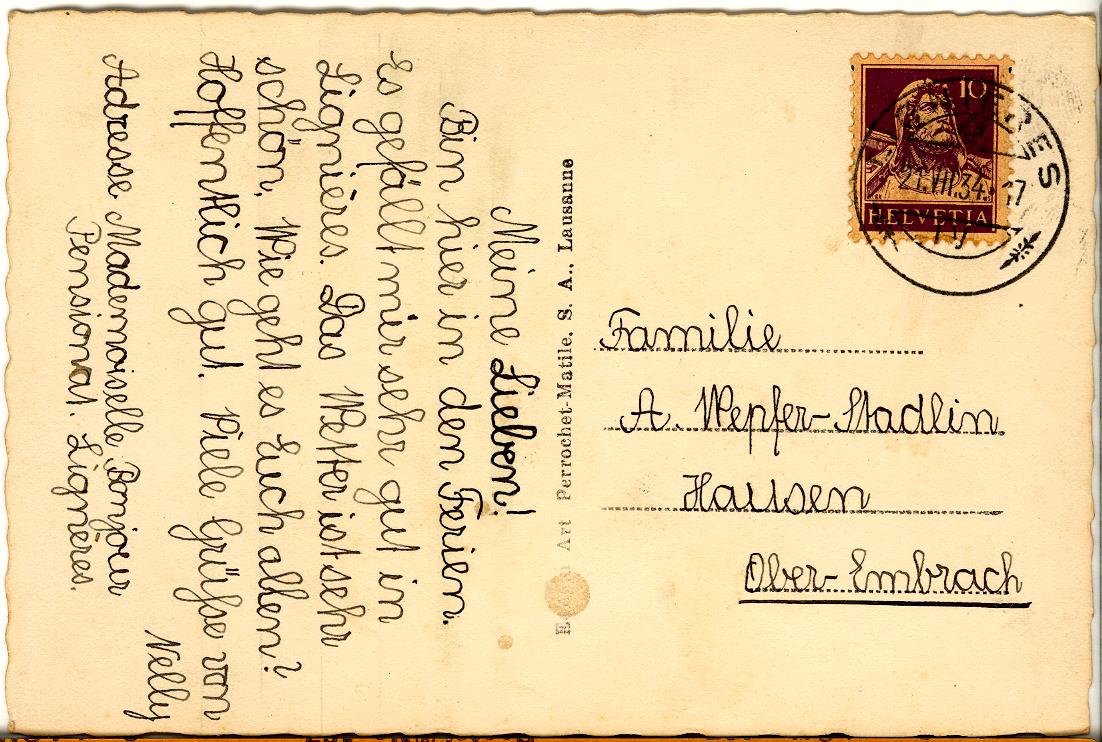 Meine Lieben!
Bin hier in den Ferien.
Es gefällt mir sehr gut in
Lignières. Das Wetter ist sehr
schön. Wie geht es Euch allen?
Hoffentlich gut. Viele Grüße von
Nelly
Adresse. Mademoiselle Bonjour
Pensionat. Lignères.
Art Perrochet-Matile. S. A., Lausanne
10
HELVETIA
21.VII.34.-17
Familie
A. Wepfer-Stadlin
Hausen
Ober-Embrach